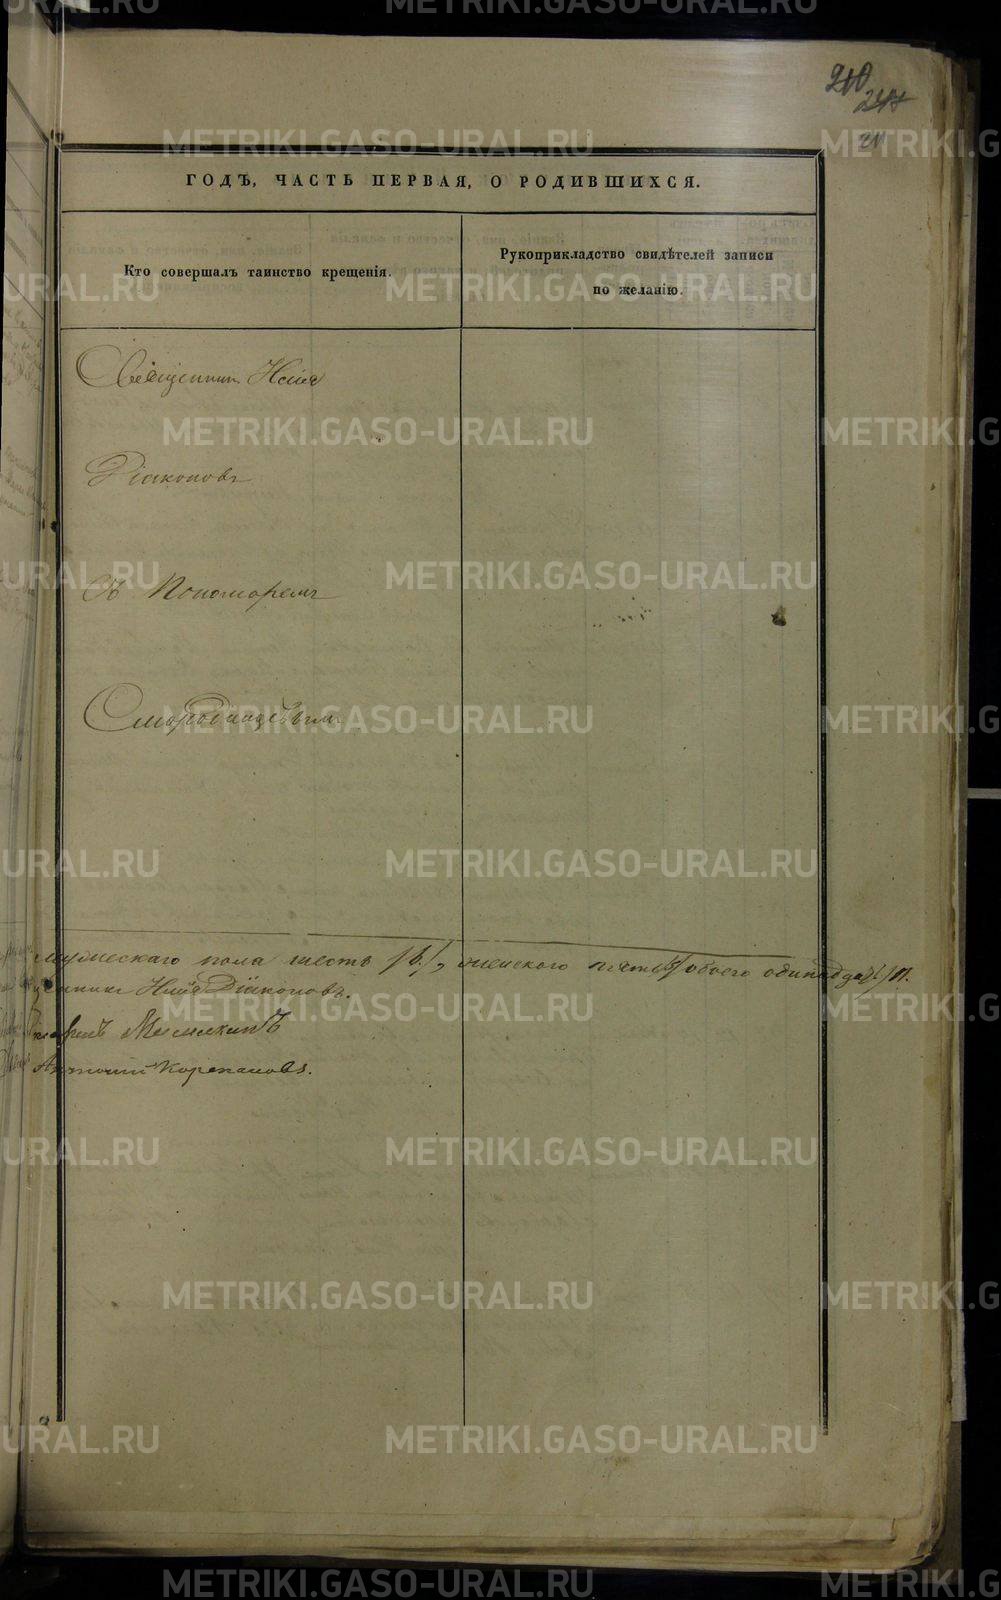 210
211
ГОДЪ, ЧАСТЬ ПЕРВАЯ, О РОДИВШИХСЯ.
Кто совершалъ таинство крещенія.
Рукоприкладство свидѣтелей записи
по желанію.
Священник
Діаконовъ
Съ Пономаремъ
Смородинцевымъ
мужескаго пола шесть /6/, женского пять /5/ обоего одинадцать /11.
Діаконовъ.
Антоній Корепановъ.
METRIKI.GASO-URAL.RU